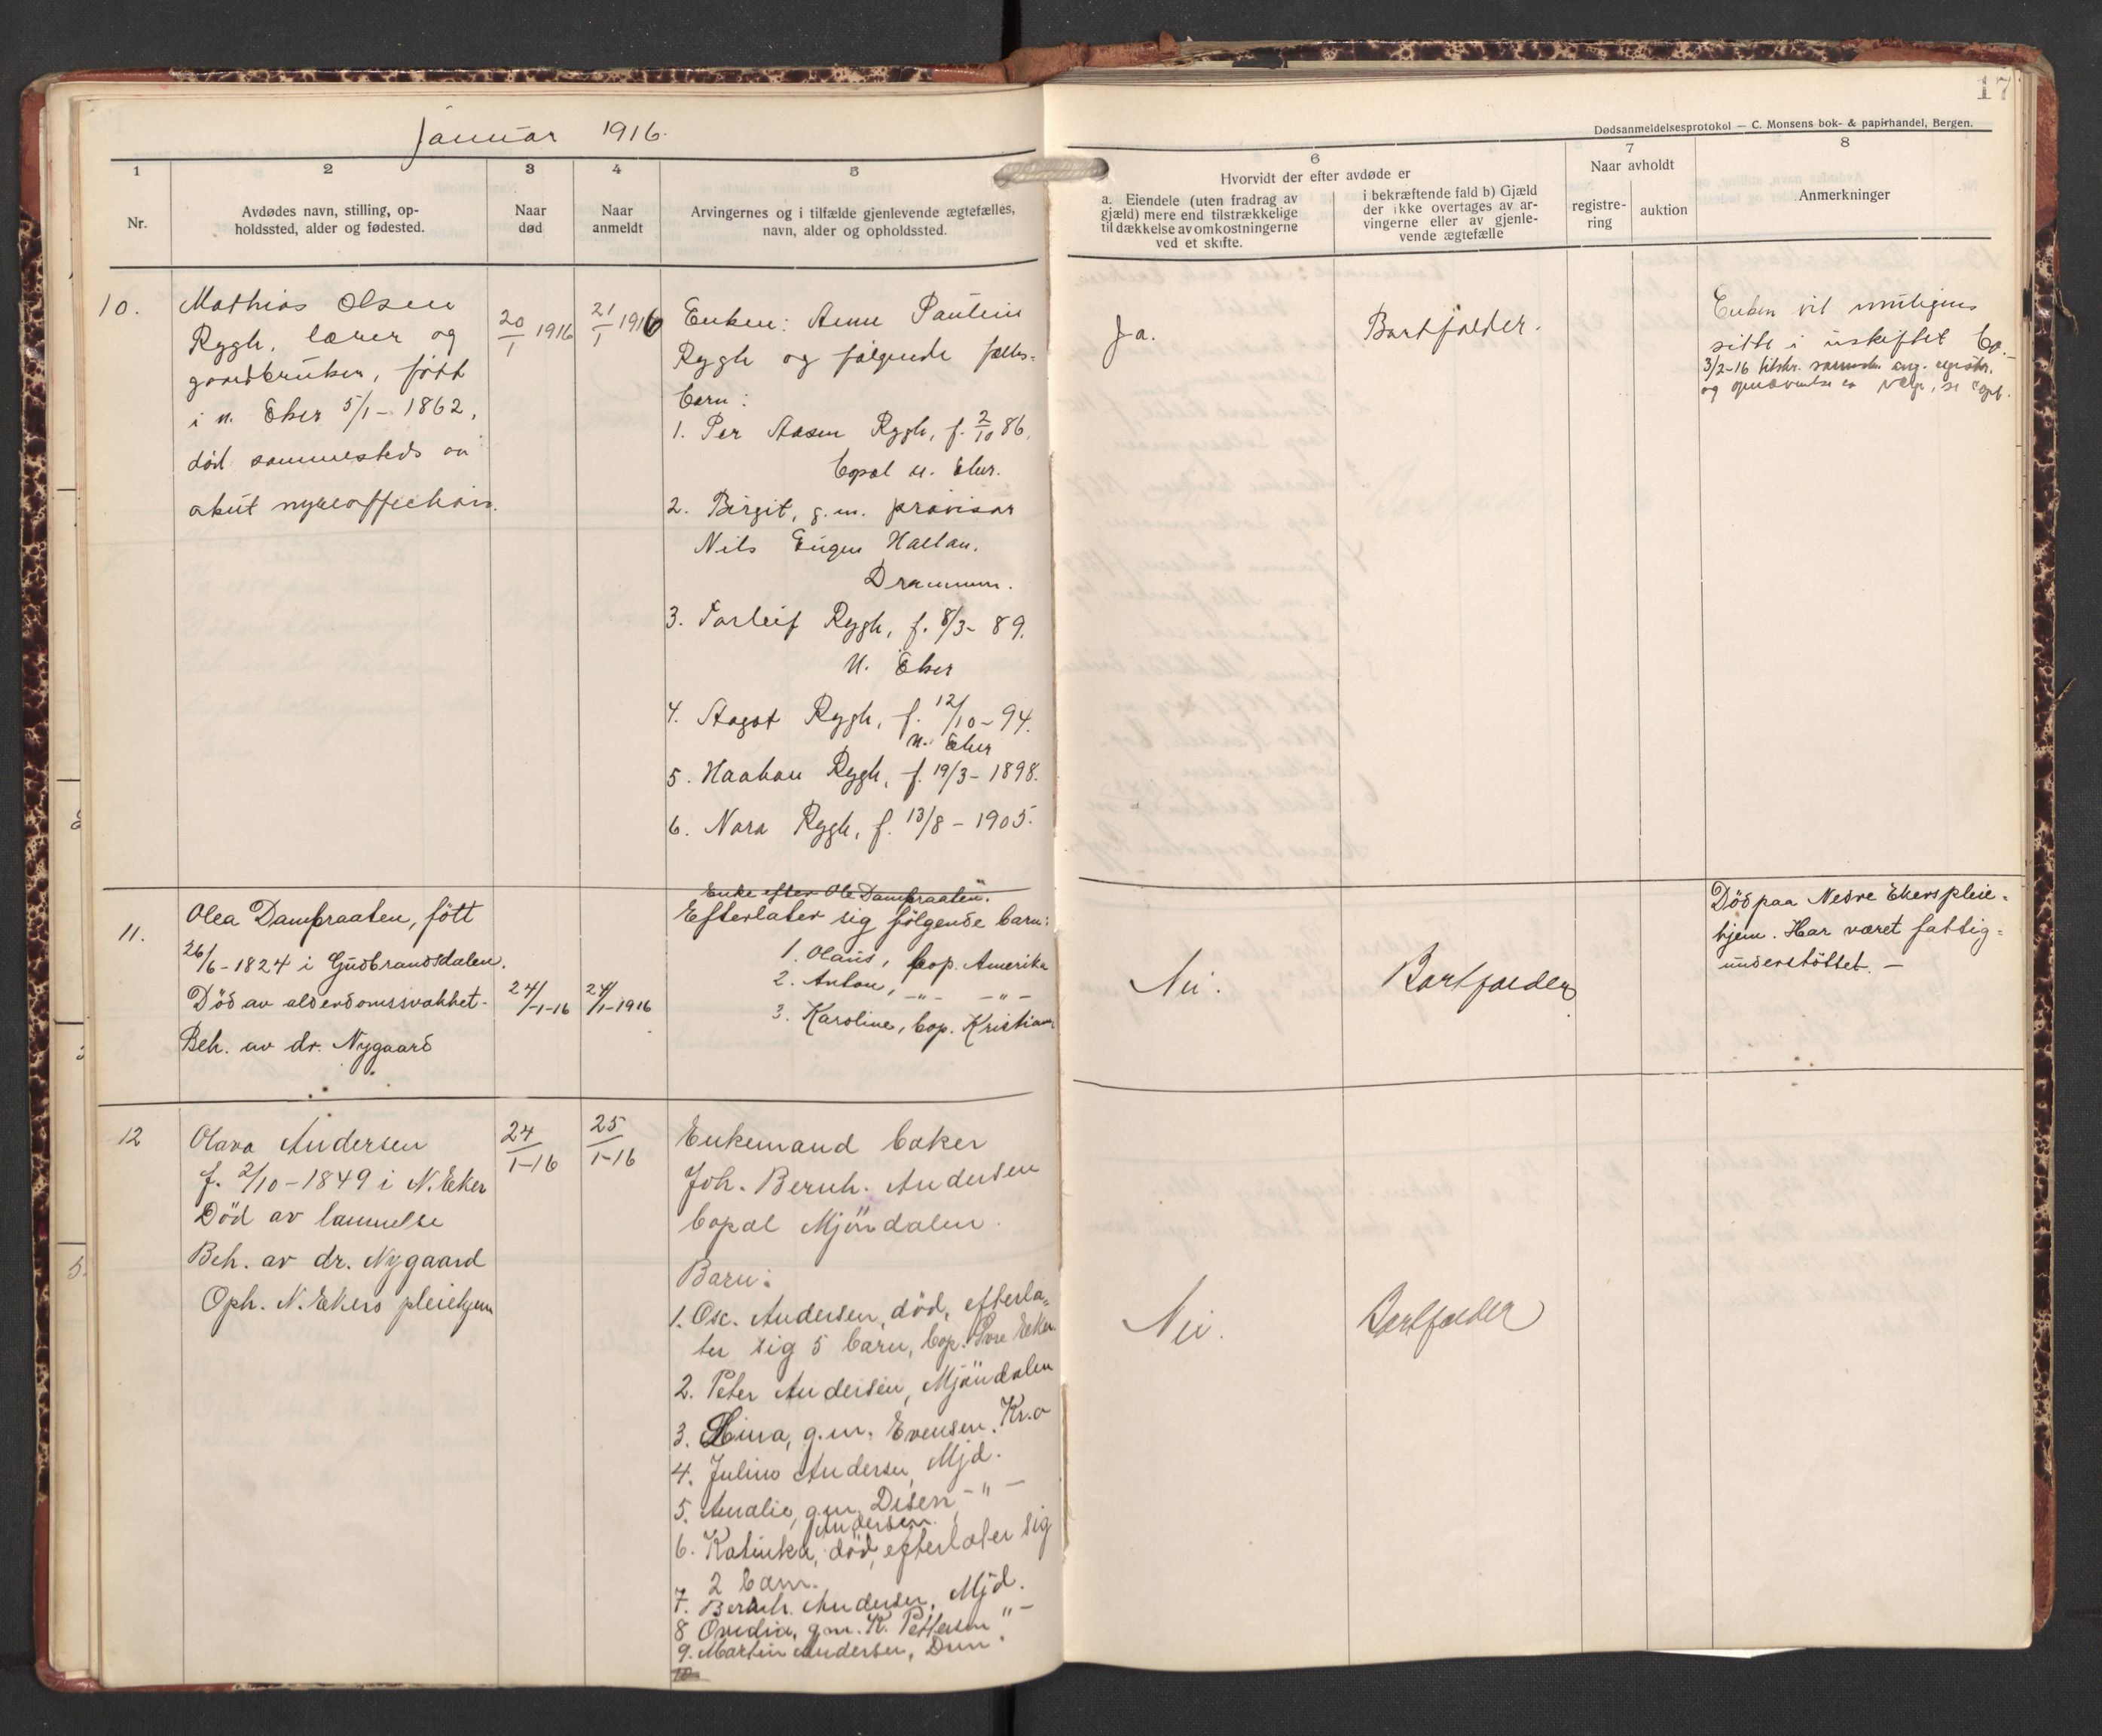 Januar 1916.
17
Dødsanmeldelsesprotokol — C. Monsens bok- & papirhandel, Bergen.
1
Nr.
2
Avdødes navn, stilling, op-
holdssted, alder og fødested.
3
Naar
død
4
Naar
anmeldt
5
Arvingernes og i tilfælde gjenlevende ægtefælles,
navn, alder og opholdssted.
6
Hvorvidt der efter avdøde er
a. Eiendele (uten fradrag av
gjæld) mere end tilstrækkelige
til dækkelse av omkostningerne
ved et skifte.
i bekræftende fald b) Gjæld
der ikke overtages av ar-
vingerne eller av gjenle-
vende ægtefælle
7
Naar avholdt
registre-
ring
auktion
8
Anmerkninger
10.
Mathias Olsen
Rygh, lærer og
gaardbruker, født
i n. Eker 5/1-1862,
død sammesteds av
akut nyreaffektion.
20/1 1916
21/1 1916
Enken: Anne Pauline
Rygh og følgende fælles-
barn:
1. Per Aasen Rygh, f. 2/10 86.
bopæl n. Eker.
2. Birgit, g.m. provisor
Nils Eugen Hallan.
Drammen.
3. Torleif Rygh, f. 8/3-89.
N. Eker
4. Aagot Rygh, f. 12/10-94.
N. Eker
5. Haakon Rygh, f. 19/3-1898.
6. Nora Rygh, f. 13/8-1905.
Ja.
Bortfalder.
Enken vil muligens
sitte i uskiftet bo.
3/2-16 og
11.
Olea Dambraaten, født
26/6-1824 i Gudbrandsdalen.
Død av alderdomssvakhet.
Beh. av dr. Nygaard
24/1-16
24/1-1916
Enke efter Ole Dambraaten.
Efterlater sig følgende barn:
1. Olaus, bop. Amerika
2. Anton, -"- -"-
3. Karoline, bop. Kristiania
Nei.
Bortfalder
Död paa Nedre Ekers pleie-
hjem. Har været fattig-
understöttet. —
12
Olava Andersen
f. 2/10-1849 i N. Eker
Död av lammelse
Beh. av dr. Nygaard
Oph. N. Ekers pleiehjem
24/1-16
25/1-16
Enkemand baker
Joh. Bernh. Andersen
bopæl Mjöndalen.
Barn:
1. Osc. Andersen, död, efterla-
ter sig 5 barn, bop. Övre Eker.
2. Peter Andersen, Mjöndalen
3. Lina, g.m. Evensen, Kr.a
4. Julius Andersen, Mjd.
5. Amalie, g.m. Disen -"-
Andersen.
6. Katinka, död, efterlater sig
2 barn.
7. Bernh. Andersen, Mjd.
8 Ovidia, g.m. K. Pettersen -"-
9. Martin Andersen, Dmn.
10
Nei.
Bortfalder